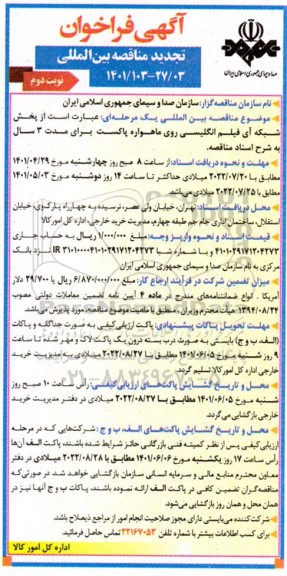 آگهی فراخوان
تجدید مناقصه بین‌المللی
۱۴۰۱/۱۰۳-۲۷/۰۳
نوبت دوم
صدا و سیمای جمهوری اسلامی ایران
نام سازمان مناقصه‌گزار: سازمان صدا و سیمای جمهوری اسلامی ایران
موضوع مناقصه بین المللی یک مرحله‌ای: عبارت است از پخش
شبکه آی فیلم انگلیسی روی ماهواره پاکست برای مدت ۳ سال
به شرح اسناد مناقصه.
مهلت و نحوه دریافت اسناد: از ساعت ۸ صبح روز چهارشنبه مورخ ۱۴۰۱/۰۴/۲۹
مطابق با ۲۰۲۲/۰۷/۲۰ میلادی حداکثر تا ساعت ۱۴ روز دوشنبه مورخ ۱۴۰۱/۰۵/۰۳
مطابق با ۲۰۲۲/۰۷/۲۵ میلادی می‌باشد.
محل دریافت اسناد: تهران، خیابان ولی عصر، نرسیده به چهارراه پارک‌وی، خیابان
استقلال، ساختمان اداری جام جم طبقه چهارم، مدیریت خرید خارجی، اداره کل امور کالا
قیمت اسناد و نحوه واریز وجه: مبلغ ۱/۰۰۰/۰۰۰ ریال به حساب جاری
و یا شماره شبا نزد بانک
مرکزی به نام سازمان صدا و سیمای جمهوری اسلامی ایران
میزان تضمین شرکت در فرآیند ارجاع کار: مبلغ ۶/۸۷۰/۰۰۰/۰۰۰ ریال یا ۲۹/۷۰۰ دلار
آمریکا. انواع ضمانتنامه‌های مندرج در ماده ۴ آیین نامه تضمین معاملات دولتی مصوب
۱۳۹۴/۰۸/۲۴ هیأت محترم وزیران، منطبق با ماهیت موضوع مناقصه، مورد پذیرش می‌باشد.
مهلت تحویل پاکات پیشنهادی: پاکت ارزیابی کیفی به صورت جداگانه و پاکات
(الف، ب و ج) بایستی به صورت درب بسته درون یک پاکت لاک و مهر شده تا ساعت
۹ روز شنبه مورخ ۱۴۰۱/۰۶/۰۵ مطابق با ۲۰۲۲/۰۸/۲۷ میلادی به مدیریت خرید
خارجی اداره کل امور کالا تسلیم گردد.
محل و تاریخ گشایش پاکت‌های ارزیابی کیفی: رأس ساعت ۱۰ صبح روز
شنبه مورخ ۱۴۰۱/۰۶/۰۵ مطابق با ۲۰۲۲/۰۸/۲۷ میلادی در دفتر مدیریت خرید
خارجی بازگشایی می‌گردد.
محل و تاریخ گشایش پاکت‌های الف، ب و ج: شرکت‌هایی که در مرحله
ارزیابی کیفی پس از نظر کمیته فنی بازرگانی حائز شرایط شده باشند، پاکت الف آن‌ها
رأس ساعت ۱۷ روز یکشنبه مورخ ۱۴۰۱/۰۶/۰۶ مطابق با ۲۰۲۲/۰۸/۲۸ میلادی در دفتر
معاون محترم منابع مالی و سرمایه انسانی سازمان بازگشایی خواهد شد. در صورتی‌که
مناقصه‌گران تضمین کافی در پاکت الف ارائه نموده باشند، پاکات ب و ج آنها نیز در
همان محل و همان روز بازگشایی می‌شود.
شرکت‌کننده می‌بایستی دارای مجوز صلاحیت انجام امور از مراجع ذیصلاح باشد.
برای کسب اطلاعات بیشتر با شماره تلفن ۲۲۱۶۷۰۵۳ تماس حاصل فرمائید.
اداره کل امور کالا